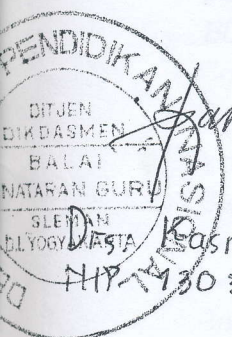 PENDIDIKAN NASIONAL
DITJEN
DIKDASMEN
BALAI
NATARAN GURU
SLEMAN
D.I. YOGYAKARTA
Drs Kasm
NIP 1303